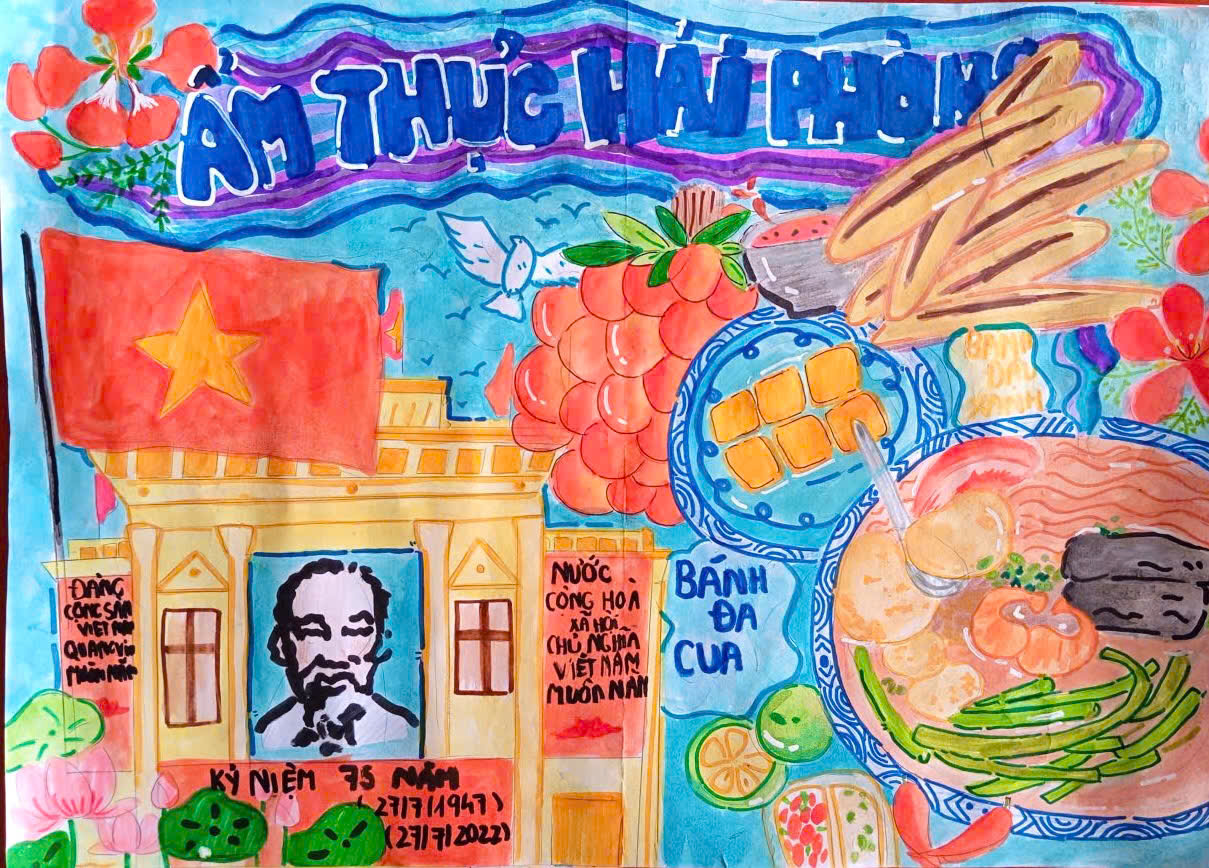 ẨM THỰC HẢI PHÒNG
BÁNH
ĐẢNG
CỘNG SẢN
VIỆT NAM
QUANG VINH
MUÔN NĂM
NƯỚC
CÔNG HOÀ
XÃ HỘI
CHỦ NGHĨA
VIỆT NAM
MUÔN NĂM
BÁNH
ĐA
CUA
KỶ NIỆM 75 NĂM
(27/7/1947)
(27/7/2022)